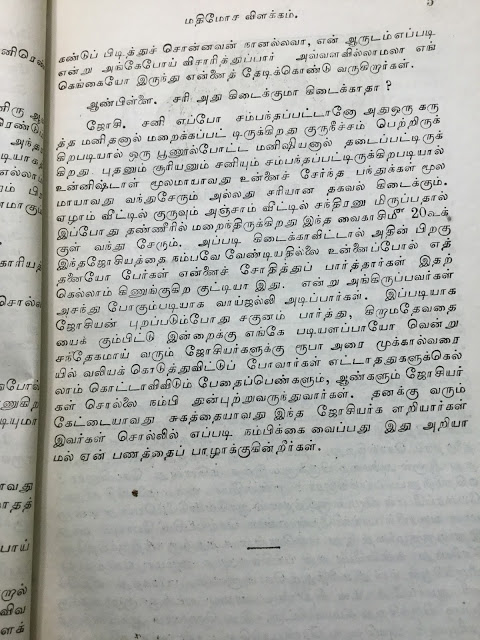 5
மதிமோச விளக்கம்.
கண்டுப் பிடித்துச் சொன்னவன் நானல்லவா, என் ஆருடம் எப்படி
என்று அங்கேபோய் விசாரித்துப்பார் அலவனவில்லாமலா எங்
கெங்கேயோ இருந்து என்னைத் தேடிக்கொண்டு வருகிறார்கள்.
ஆண்பிள்ளை. சரி அது கிடைக்குமா கிடைக்காதா ?
ஜோசி. சனி எப்போ சம்பந்தப்பட்டானோ அது ஒரு கரு
த்த மனிதனால் மறைக்கப்பட் டிருக்கிறது குருநீச்சம் பெற்றிருக்
கிறபடியால் ஒரு பூணூல்போட்ட மனிஷியனால் தடைப்பட்டிருக்
கிறது புதனும் சூரியனும் சனியும் சம்பந்தப்பட்டிருக்கிறபடியால்
உன்னிஷ்டாள் மூலமாயாவது உன்னைச் சேர்ந்த பந்துக்கள் மூல
மாயாவது வந்துசேரும் அல்லது சரியான தகவல் கிடைக்கும்.
ஏழாம் வீட்டில் குருவும் அஞ்சாம் வீட்டில் சந்திரனு மிருப்பதால்
இப்போது தண்ணீரில் மறைந்திருக்கிறது இந்த வைகாசிமீ 20உக்
குள் வந்து சேரும். அப்படி கிடைக்காவிட்டால் அதின் பிறகு
இந்தஜோசியத்தை நம்பவே வேண்டியதில்லை உன்னைப்போல் எத்
தனையோ பேர்கள் என்னைச் சோதித்துப் பார்த்தார்கள் இதற்
கெல்லாம் கிணுங்குகிற குட்டியா இது. என்று அங்கிருப்பவர்கள்
அசந்து போகும்படியாக வாய்ஜல்லி அடிப்பார்கள். இப்படியாக
ஜோசியன் புறப்படும்போது சகுனம் பார்த்து, கிறாமதேவதை
யைக் கும்பிட்டு இன்றைக்கு எங்கே படியளப்பாயோ வென்று
சந்தேகமாய் வரும் ஜோசியர்களுக்கு ரூபா அரை முக்கால்வரை
யில் வலியக் கொடுத்துவிட்டுப் போவார்கள் எட்டாததுகளுக்கெல்
லாம் கொட்டாவிவிடும் பேதைப்பெண்களும், ஆண்களும் ஜோசியர்
கள் சொல்லை நம்பி துன்புற்றுவருந்துவார்கள். தனக்கு வரும்
கேட்டையாவது சுகத்தையாவது இந்த ஜோசியர்க ளறியார்கள்
இவர்கள் சொல்லில் எப்படி நம்பிக்கை வைப்பது இது அறியா
மல் ஏன் பணத்தைப் பாழாக்குகின்றீர்கள்.